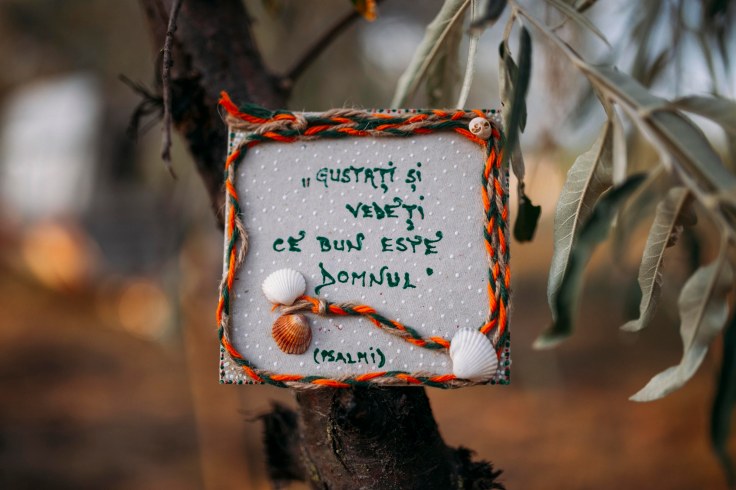 „GUSTAȚI ȘI
VEDEȚI
CE BUN ESTE
DOMNUL"
(PSALMI)